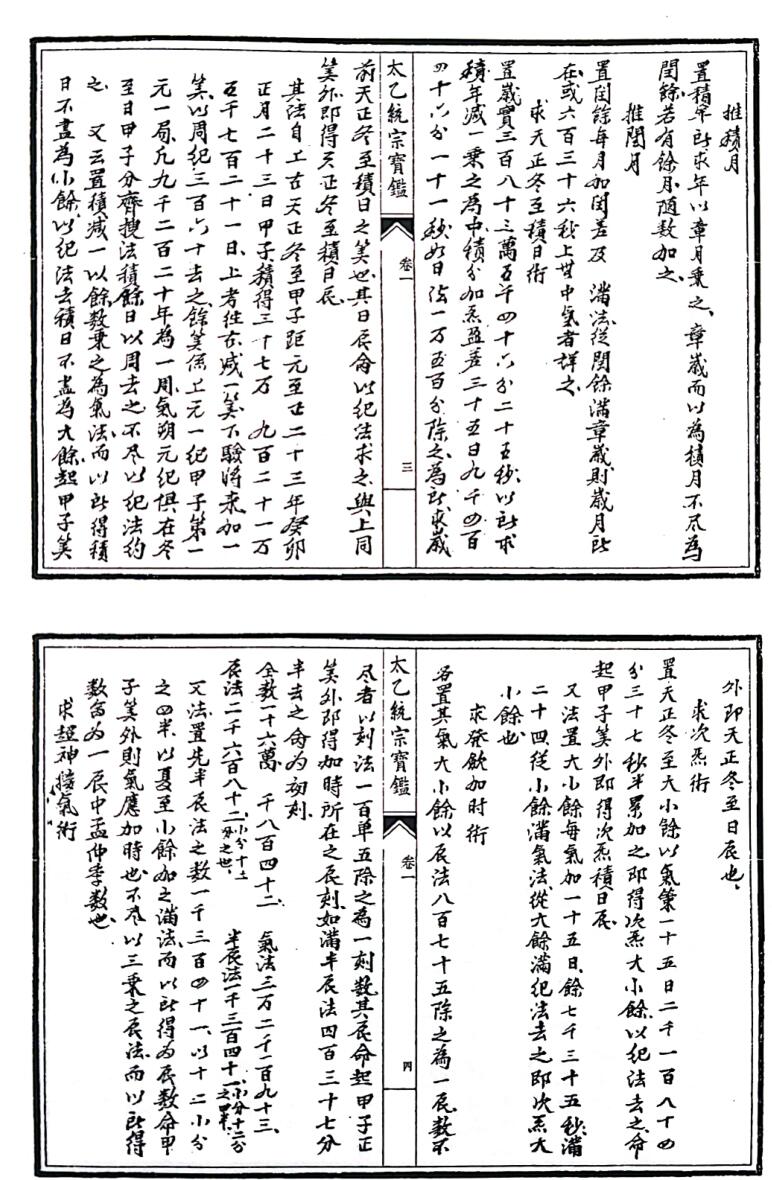 推積月
置積年所求年以章月乗之、章歲而以為積月不尽為
閏餘若有餘月隨数加之、
推閏月
置閏餘每月加閏差及 滿法從閏餘滿章歲則歲月所
在或六百三十六秒上無中氣者詳之
求天正冬至積日術
置歲實三百八十三萬五千四十六分二十五秒以所求
積年減一乗之為中積分加炁盈差三十五日九千四百
四十六分一十一秒如日法一万五百分除之為所求歲
太乙統宗寶鑑
卷一
三
前天正冬至積日之筭也其日辰命以纪法求之與上同
筭外即得天正冬至積日辰
其法自上古天正冬至甲子距元至正二十三年癸卯
正月二十三日甲子積得三十七万 九百二十一万
五千七百二十一日、上考往古減一筭下驗將來加一
筭以周纪三百六十去之餘筭係上元一纪甲子第一
元一局凡九千二百二十年為一周氣朔元纪惧在冬
至日甲子分齊搜法積餘日以周去之不尽以纪法约
之 又云置積減一以餘数乗之為氣法而以所得積
日不盡為小餘以纪法去積日不盡為大餘起甲子筭
外即天正冬至日辰也、
求次炁術
置天正冬至大小餘以氣策一十五日二千一百八十四
分三十七秒半累加之即得次炁大小餘以纪法去之命
起甲子筭外即得次炁積日辰
又法置大小餘每氣加一十五日、餘七千三十五秒滿
二十四、從小餘滿氣法、從大餘滿纪法去之即次炁大
小餘也
求發歛加时術
各置其氣大小餘以辰法八百七十五除之為一辰数不
太乙統宗寶鑑
卷一
四
尽者以刻法一百单五除之為一刻数其辰命起甲子正
筭外即得加時所在之辰刻、如滿半辰法四百三十七分
半去之命为初刻
全数一十六萬 千八百四十二 氣法三万二千一百九十三、
辰法二千六百八十二、小分十二分之也、 半辰法一千三百四十一、小分十二分之四半、
又法置先半辰法之数一千三百四十一、以十二小分
之四半以夏至小餘加之滿法而以所得为辰数命甲
子筭外則氣應加時也不尽以三乗之辰法而以所得
数命为一辰中孟仲季数也、
求超神接氣術